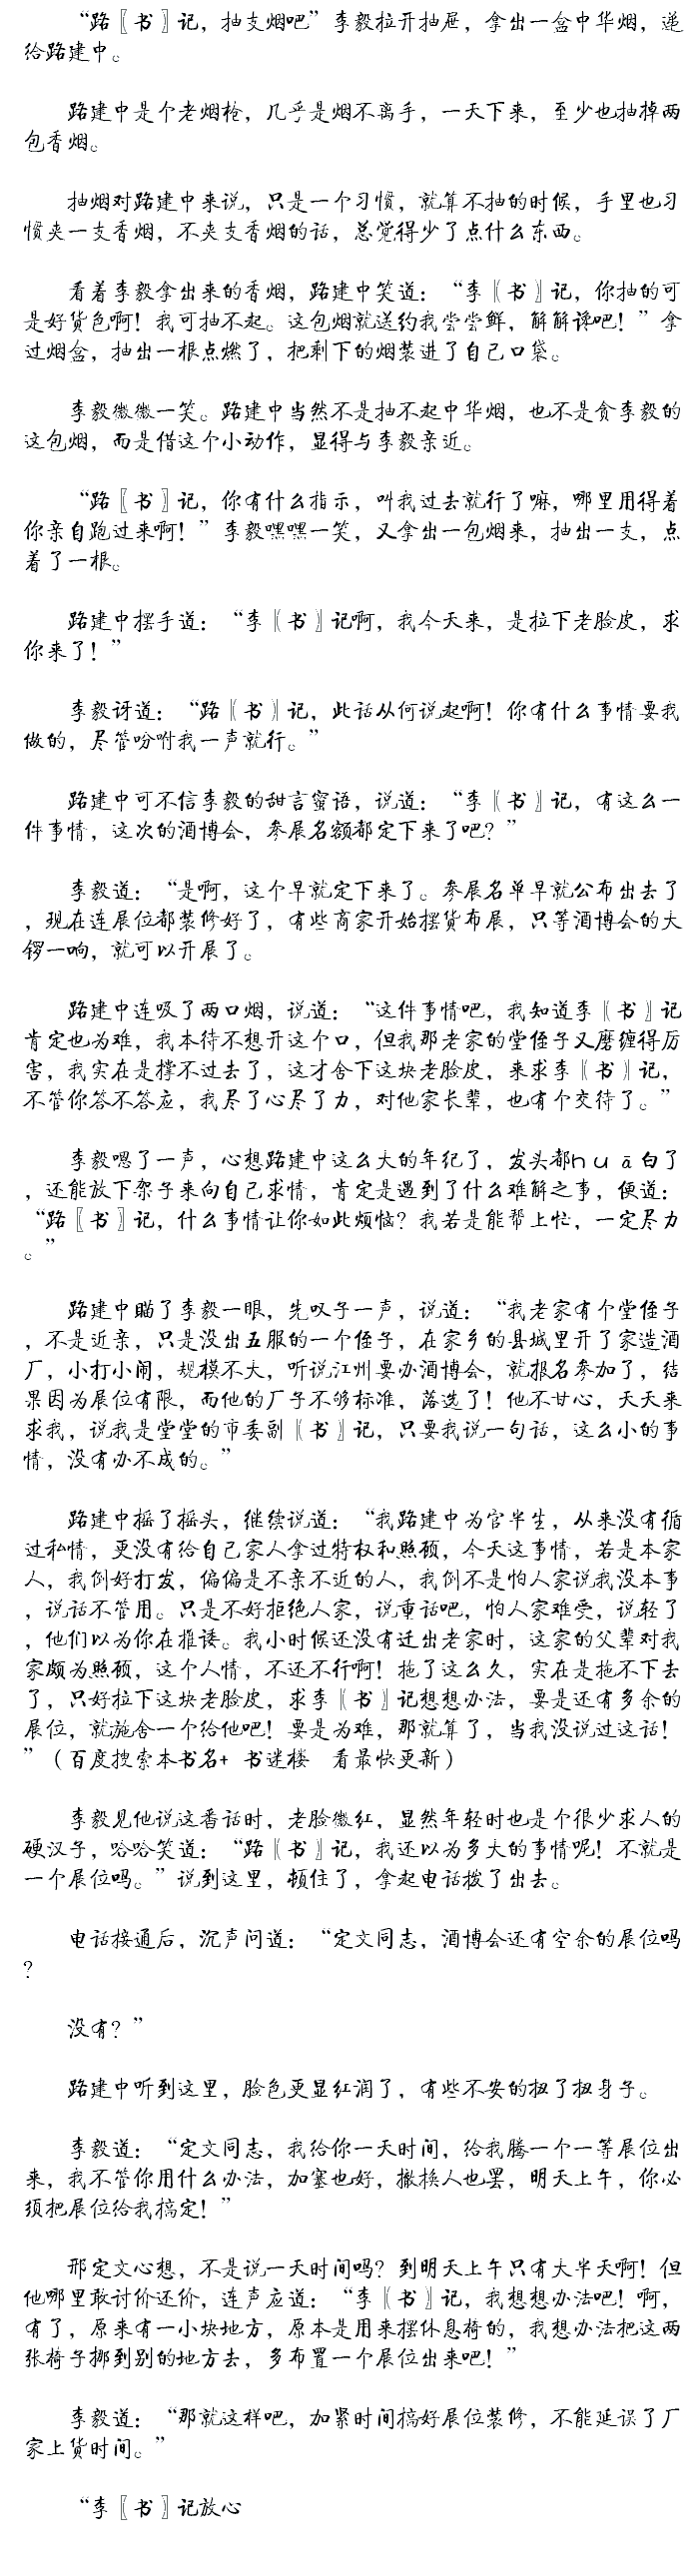 “路〖书〗记，抽支烟吧”李毅拉开抽屉，拿出一盒中华烟，递
给路建中。
路建中是个老烟枪，几乎是烟不离手，一天下来，至少也抽掉两
包香烟。
抽烟对路建中来说，只是一个习惯，就算不抽的时候，手里也习
惯夹一支香烟，不夹支香烟的话，总觉得少了点什么东西。
看着李毅拿出来的香烟，路建中笑道：“李〖书〗记，你抽的可
是好货色啊！我可抽不起。这包烟就送约我尝尝鲜，解解谗吧！”拿
过烟盒，抽出一根点燃了，把剩下的烟装进了自己口袋。
李毅微微一笑。路建中当然不是抽不起中华烟，也不是贪李毅的
这包烟，而是借这个小动作，显得与李毅亲近。
“路〖书〗记，你有什么指示，叫我过去就行了嘛，哪里用得着
你亲自跑过来啊！”李毅嘿嘿一笑，又拿出一包烟来，抽出一支，点
着了一根。
路建中摆手道：“李〖书〗记啊，我今天来，是拉下老脸皮，求
你来了！”
李毅讶道：“路〖书〗记，此话从何说起啊！你有什么事情要我
做的，尽管吩咐我一声就行。”
路建中可不信李毅的甜言蜜语，说道：“李〖书〗记，有这么一
件事情，这次的酒博会，参展名额都定下来了吧？”
李毅道：“是啊，这个早就定下来了。参展名单早就公布出去了
，现在连展位都装修好了，有些商家开始摆货布展，只等酒博会的大
锣一响，就可以开展了。
路建中连吸了两口烟，说道：“这件事情吧，我知道李〖书〗记
肯定也为难，我本待不想开这个口，但我那老家的堂侄子又磨缠得厉
害，我实在是撑不过去了，这才舍下这块老脸皮，来求李〖书〗记，
不管你答不答应，我尽了心尽了力，对他家长辈，也有个交待了。”
李毅嗯了一声，心想路建中这么大的年纪了，发头都huā白了
，还能放下架子来向自己求情，肯定是遇到了什么难解之事，便道：
“路〖书〗记，什么事情让你如此烦恼？我若是能帮上忙，一定尽力
。”
路建中瞄了李毅一眼，先叹予一声，说道：“我老家有个堂侄子
，不是近亲，只是没出五服的一个侄子，在家乡的县城里开了家造酒
厂，小打小闹，规模不大，听说江州要办酒博会，就报名参加了，结
果因为展位有限，而他的厂子不够标准，落选了！他不甘心，天天来
求我，说我是堂堂的市委副〖书〗记，只要我说一句话，这么小的事
情，没有办不成的。”
路建中摇了摇头，继续说道：“我路建中为官半生，从来没有循
过私情，更没有给自己家人拿过特权和照顾，今天这事情，若是本家
人，我倒好打发，偏偏是不亲不近的人，我倒不是怕人家说我没本事
，说话不管用。只是不好拒绝人家，说重话吧，怕人家难受，说轻了
，他们以为你在推诿。我小时候还没有迁出老家时，这家的父辈对我
家颇为照顾，这个人情，不还不行啊！拖了这么久，实在是拖不下去
了，只好拉下这块老脸皮，求李〖书〗记想想办法，要是还有多余的
展位，就施舍一个给他吧！要是为难，那就算了，当我没说过这话！
”（百度搜索本书名+ 书迷楼 看最快更新）
李毅见他说这番话时，老脸微红，显然年轻时也是个很少求人的
硬汉子，哈哈笑道：“路〖书〗记，我还以为多大的事情呢！不就是
一个展位吗。”说到这里，顿住了，拿起电话拨了出去。
电话接通后，沉声问道：“定文同志，酒博会还有空余的展位吗
？
没有？”
路建中听到这里，脸色更显红润了，有些不安的扭了扭身子。
李毅道：“定文同志，我给你一天时间，给我腾一个一等展位出
来，我不管你用什么办法，加塞也好，撤换人也罢，明天上午，你必
须把展位给我搞定！”
邢定文心想，不是说一天时间吗？到明天上午只有大半天啊！但
他哪里敢讨价还价，连声应道：“李〖书〗记，我想想办法吧！啊，
有了，原来有一小块地方，原本是用来摆休息椅的，我想办法把这两
张椅子挪到别的地方去，多布置一个展位出来吧！”
李毅道：“那就这样吧，加紧时间搞好展位装修，不能延误了厂
家上货时间。”
“李〖书〗记放心